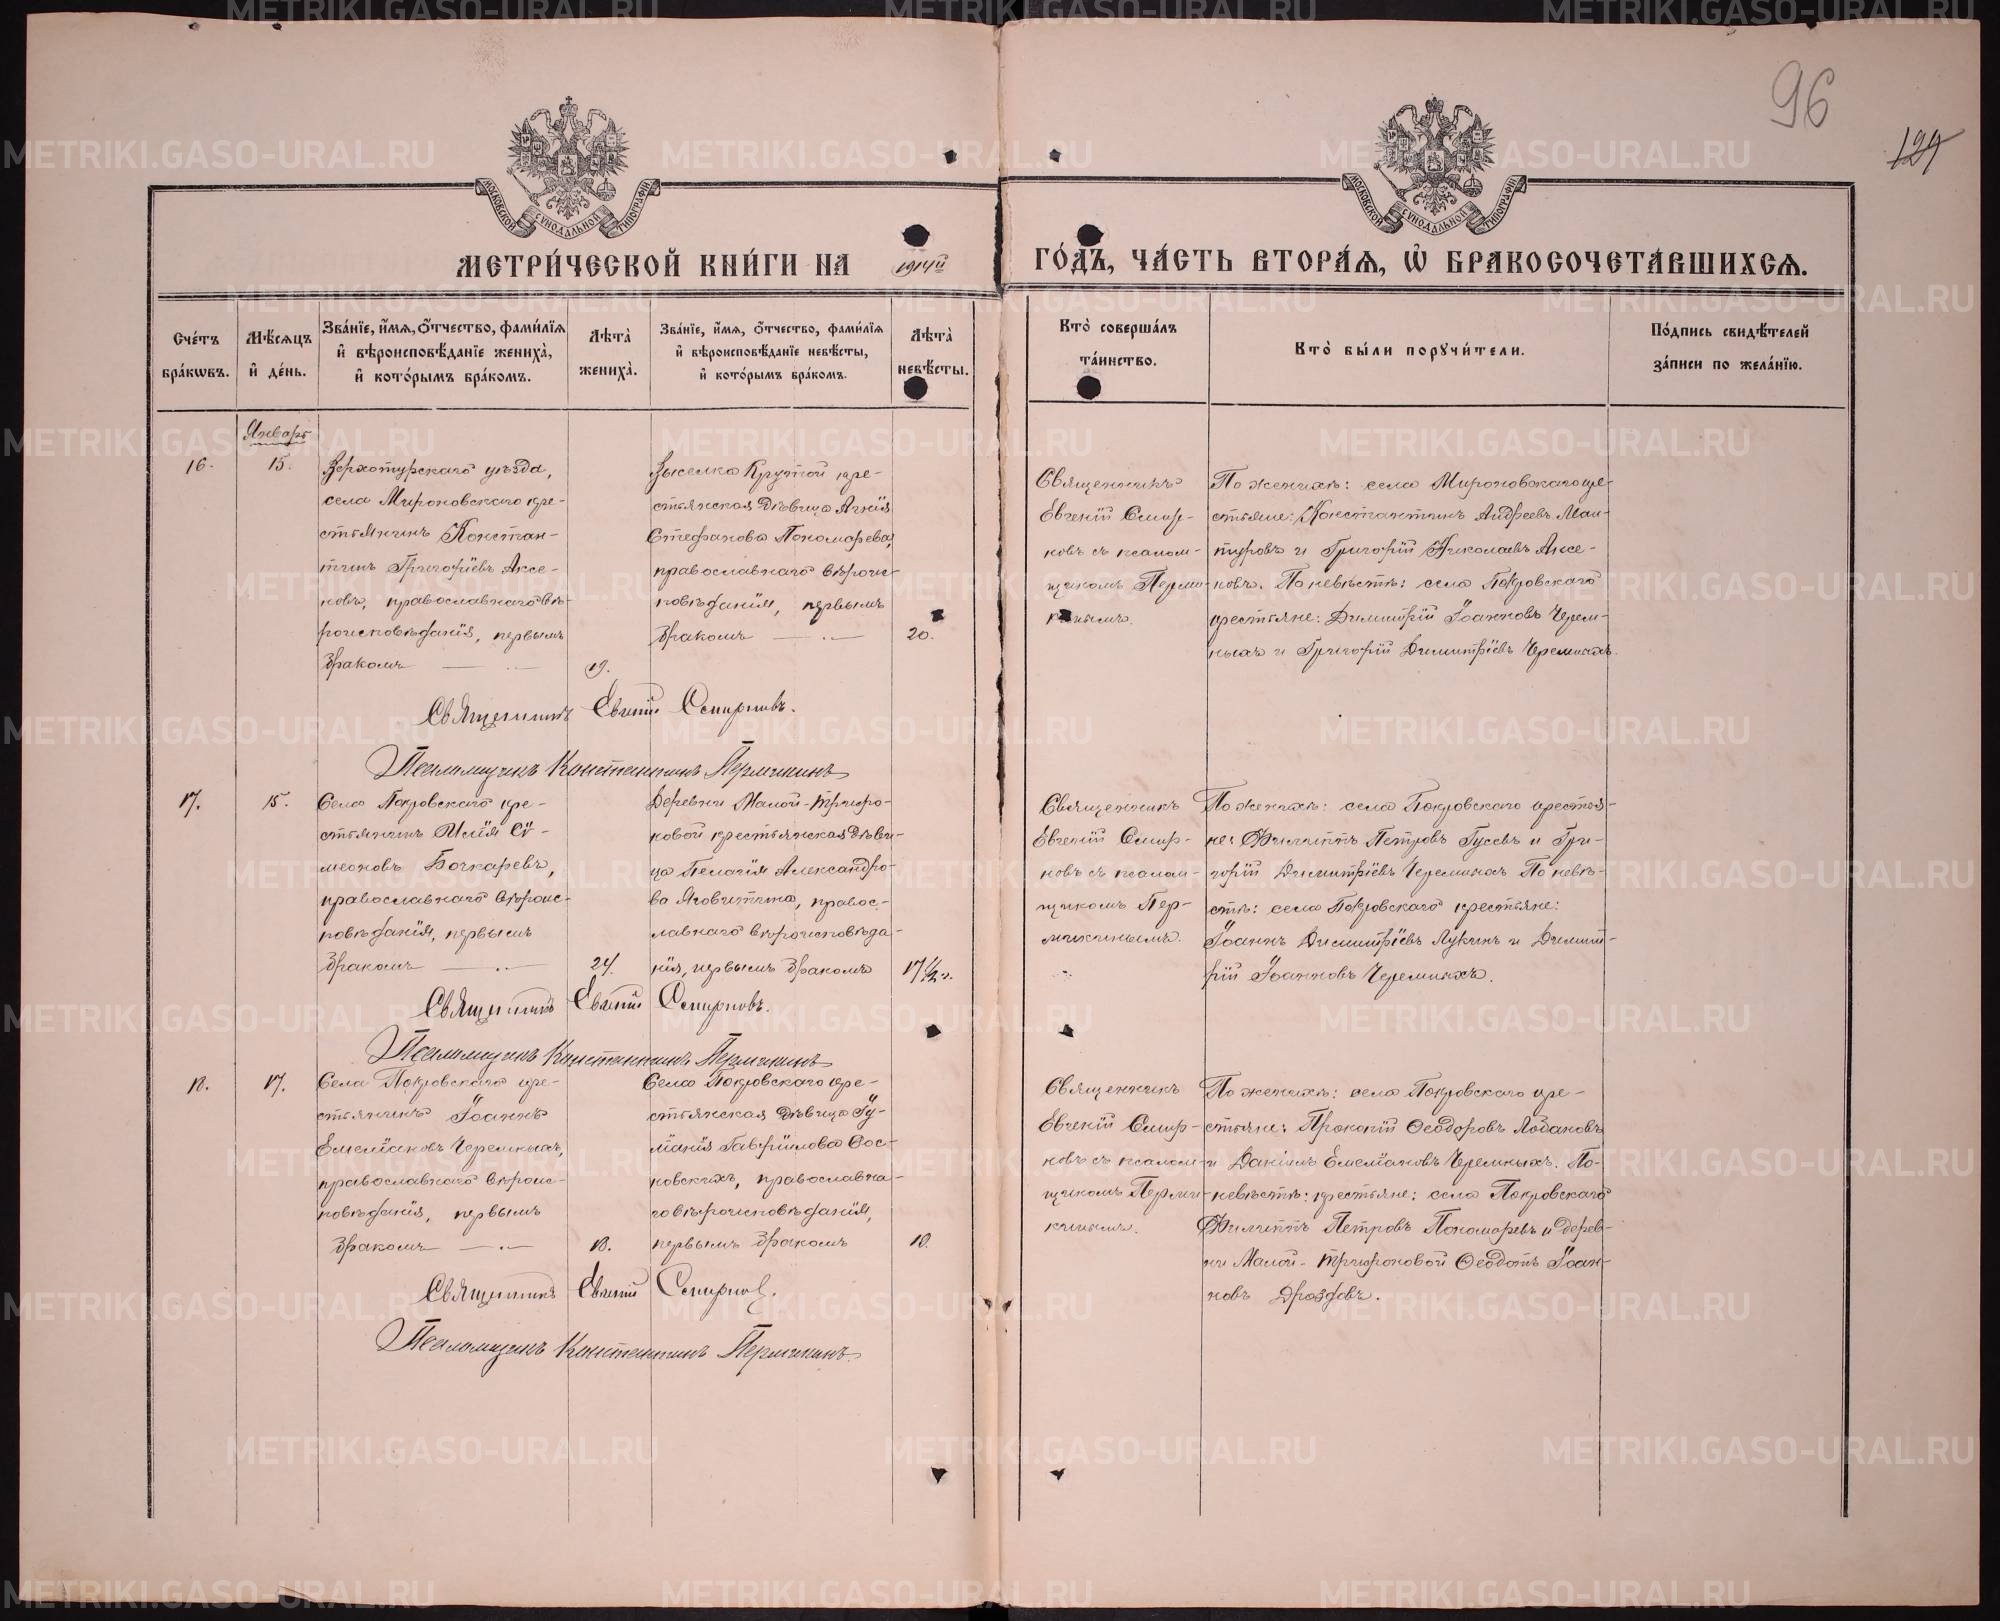 96
129
МОСКОВСКОЙ СѴНОДАЛЬНОЙ ТИПОГРАФІИ
МОСКОВСКОЙ СѴНОДАЛЬНОЙ ТИПОГРАФІИ
МЕТРИ́ЧЕСКОЙ КНИ́ГИ НА 1914й ГО́ДЪ, ЧА́СТЬ ВТОРА́Ѧ, Ѡ҆ БРАКОСОЧЕТА́ВШИХСѦ.
Сче́тъ бра́кѡвъ.
Мѣ́сѧцъ и҆ де́нь.
Зва́нїе, и҆́мѧ, ѻ҆́тчество, фами́лїѧ и҆ вѣроисповѣ́данїе жениха̀, и҆ кото́рымъ бра́комъ.
Лѣ́та̀ жениха̀.
Зва́нїе, и҆́мѧ, ѻ҆́тчество, фами́лїѧ и҆ вѣроисповѣ́данїе невѣ́сты, и҆ кото́рымъ бра́комъ.
Лѣ́та̀ невѣ́сты.
Кто̀ соверша́лъ та́инство.
Кто̀ бы́ли порꙋчи́тели.
По́дпись свидѣ́телей за́писи по жела́нїю.
Январь
16.
15.
Верхотурскаго уѣзда,
села Мироновскаго кре-
стьянинъ Констан-
тинъ Григоріевъ Аксе-
новъ, православнаго вѣ-
роисповѣданія, первымъ
бракомъ
19.
Выселка Крутой кре-
стьянская дѣвица Агнія
Стефанова Пономарева,
православнаго вѣроис-
повѣданія, первымъ
бракомъ
20.
Священникъ
Евгеній Смир-
новъ съ псалом-
щикомъ Перми-
кинымъ.
По женихѣ: села Мироновскаго кре-
стьяне: Константинъ Андреевъ Ман-
туровъ и Григорій Николаевъ Аксе-
новъ. По невѣстѣ: села Покровскаго
крестьяне: Димитрій Іоанновъ Черем-
ныхъ и Григорій Димитріевъ Черемныхъ.
Священникъ Евгеній Смирновъ.
Псаломщикъ Константинъ Пермикинъ
17.
15.
Села Покровскаго кре-
стьянинъ Илія Сѵ-
меоновъ Бочкаревъ,
православнаго вѣроис-
повѣданія, первымъ
бракомъ
24.
Деревни Малой-Трифо-
новой крестьянская дѣви-
ца Пелагія Александро-
ва Яговитина, правос-
лавнаго вѣроисповѣда-
нія, первымъ бракомъ
17 1/2 г.
Священникъ
Евгеній Смир-
новъ съ псалом-
щикомъ Пер-
микинымъ.
По женихѣ: села Покровскаго крестья-
не: Филиппъ Петровъ Гусевъ и Гри-
горій Димитріевъ Черемныхъ. По невѣ-
стѣ: села Покровскаго крестьяне:
Іоаннъ Димитріевъ Лукинъ и Димит-
рій Іоанновъ Черемныхъ.
Священникъ Евгеній Смирновъ.
Псаломщикъ Константинъ Пермикинъ
18.
17.
Села Покровскаго кре-
стьянинъ Іоаннъ
Емеліановъ Черемныхъ,
православнаго вѣроис-
повѣданія, первымъ
бракомъ
18.
Села Покровскаго кре-
стьянская дѣвица Іу-
ліанія Гавріилова Сос-
новскихъ, православна-
го вѣроисповѣданія,
первымъ бракомъ
18.
Священникъ
Евгеній Смир-
новъ съ псалом-
щикомъ Перми-
кинымъ.
По женихѣ: села Покровскаго кре-
стьяне: Прокопій Ѳеодоровъ Лобановъ
и Даніилъ Емеліановъ Черемныхъ. По
невѣстѣ: крестьяне: села Покровскаго
Филиппъ Петровъ Пономаревъ и дерев-
ни Малой-Трифоновой Ѳеодотъ Іоан-
новъ Дроздовъ.
Священникъ Евгеній Смирновъ.
Псаломщикъ Константинъ Пермикинъ.
METRIKI.GASO-URAL.RU